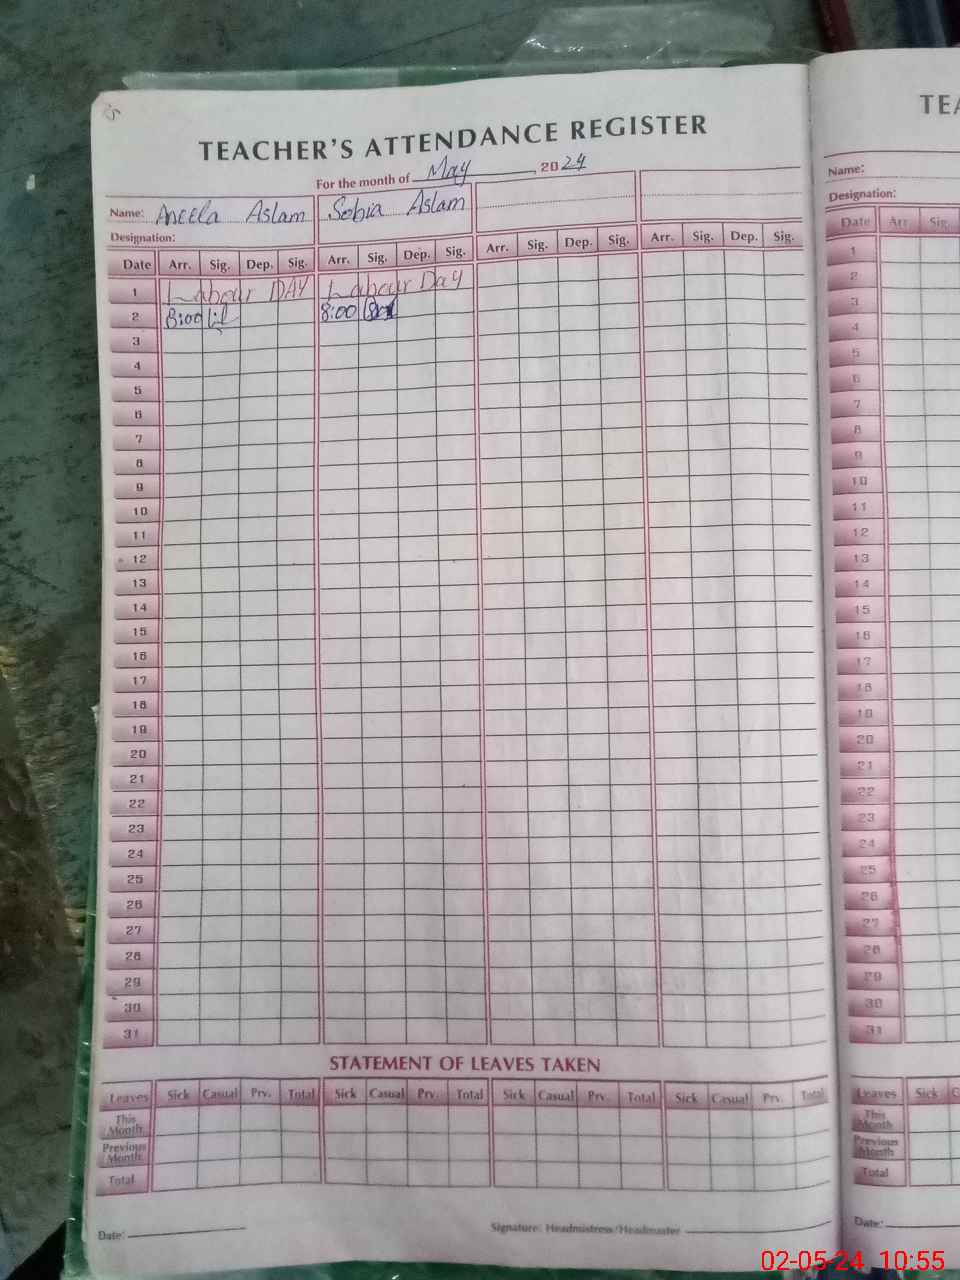 TEACHER'S ATTENDANCE REGISTER
For the month of May, 2024
Name: Aneela Aslam Sobia Aslam
Designation:
Date Arr. Sig. Dep. Sig. Arr. Sig. Dep. Sig. Arr. Sig. Dep. Sig. Arr. Sig. Dep. Sig.
1 Labour DAY Labour Day
2 8:00 8:00
3
4
5
6
7
8
9
10
11
12
13
14
15
16
17
18
19
20
21
22
23
24
25
26
27
28
29
30
31
STATEMENT OF LEAVES TAKEN
Leaves Sick Casual Prv. Total Sick Casual Prv. Total Sick Casual Prv. Total Sick Casual Prv. Total
This Month
Previous Month
Total
Date: Signature: Headmistress/Headmaster
TEA
Name:
Designation:
Date Arr Sig.
1
2
3
4
5
6
7
8
9
10
11
12
13
14
15
16
17
18
19
20
21
22
23
24
25
26
27
28
29
30
31
Leaves Sick C
This Month
Previous Month
Total
Date:
02-05-24 10:55